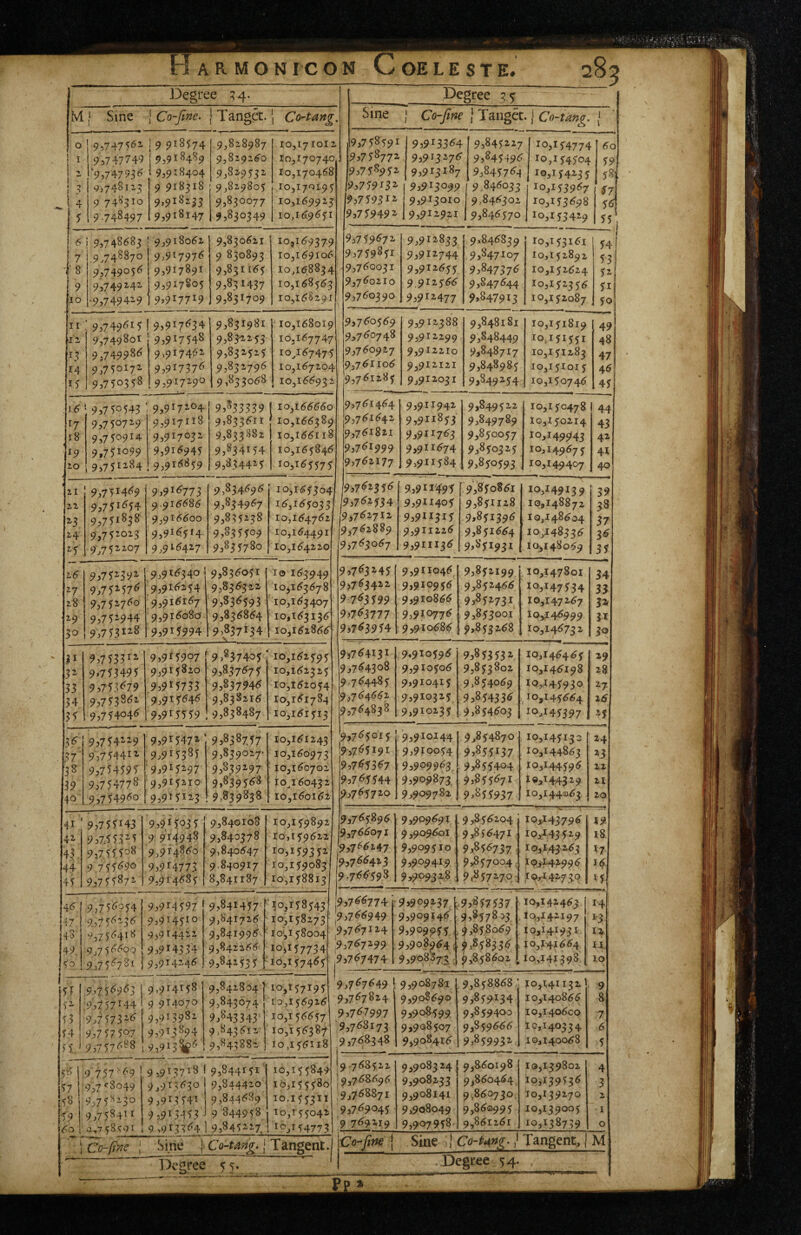 HARMONICON COELESTE. 283
Degree 34. Degree 35
M Sine Co-sine. Tangēt. Co-tang. Sine Co-sine Tangēt. Co-tang.
0 9,747562 9 918574 9,828987 10,171012 9,758591 9,913364 9,845227 10,154774 60
1 9,747749 9,918489 9,829260 10,170740 9,758772 9,913276 9,845496 10,154504 59
2 9,747936 9,918404 9,829532 10,170468 9,758952 9,913187 9,845764 10,154235 58
3 9,748123 9 918318 9,829805 10,170195 9,759132 9,913099 9.846033 10,153967 57
4 9 748310 9,918233 9,830077 10,169923 9,759312 9,913010 9.846302 10,153698 56
5 9 748497 9,918147 9,830349 10,169651 9,759492 9,912921 9,846570 10,153429 55
6 9,748683 9,918062 9,830621 10,169379 9,759672 9,912833 9,846839 10,153161 54
7 9,748870 9,917976 9 830893 10,169106 9,759851 9,912744 9,847107 10,152892 53
8 9,749056 9,917891 9,831165 10,168834 9,760031 9,912655 9,847376 10,152624 52
9 9,749242 9,917805 9,831437 10,168563 9,760210 9.912566 9,847644 10,152356 51
10 9,749429 9,917719 9,831709 10,168291 9,760390 9,912477 9,847913 10,152087 50
11 9,749615 9,917634 9,831981 10,168019 9,760569 9,912388 9,848181 10,151819 49
12 9,749801 9,917548 9,832253 10,167747 9,760748 9,912299 9,848449 10,151551 48
13 9,749986 9,917462 9,832525 10,167475 9,760927 9,912210 9,848717 10,151283 47
14 9,750172 9,917376 9,832796 10,167204 9,761106 9,912121 9,848985 10,151015 46
15 9,750358 9,917290 9,833068 10,166932 9,761285 9,912031 9,849254 10,150746 45
16 9,750543 9,917204 9,833339 10,166660 9,761464 9,911942 9,849522 10,150478 44
17 9,750729 9,917118 9,833611 10,166389 9,761642 9,911853 9,849789 10,150214 43
18 9,750914 9,917032 9,833882 10,166118 9,761821 9,911763 9,850057 10,149943 42
19 9,751099 9,916945 9,834154 10,165846 9,761999 9,911674 9,850325 10,149675 41
20 9,751284 9,916859 9,834425 10,165575 9,762177 9,911584 9,850593 10,149407 40
21 9,751469 9,916773 9,834696 10,165304 9,762356 9,911495 9,850861 10,149139 39
22 9,751654 9 916686 9,834967 10,165033 9,762534 9,911405 9,851128 10,148872 38
23 9,751838 9,916600 9,835238 10,164762 9,762712 9,911315 9,851396 10,148604 37
24 9,752023 9,916514 9,835509 10,164491 9,762889 9,911226 9,851664 10,148336 36
25 9,752207 9,916427 9,835780 10,164220 9,763067 9,911136 9,851931 10,148069 35
26 9,752392 9,916340 9,836051 10 163949 9,763245 9,911046 9,852199 10,147801 34
27 9,752576 9,916254 9,836322 10,163678 9,763422 9,910956 9,852466 10,147534 33
28 9,752760 9,916167 9,836593 10,163407 9 763599 9,910866 9,852731 10,147267 32
29 9,752944 9,916080 9,836864 10,163136 9,763777 9,910776 9,853001 10,146999 31
30 9,753128 9,915994 9,837134 10,162866 9,763954 9,910686 9,853268 10,146732 30
31 9,753312 9,915907 9,837405 10,162595 9,764131 9,910596 9,853532 10,146465 29
32 9,753495 9,915820 9,837675 10,162325 9,764308 9,910506 9,853802 10,146198 28
33 9,753679 9,915733 9,837946 10,162054 9 764485 9,910415 9,854069 10,145930 27
34 9,753862 9,915646 9,838216 10,161784 9,764662 9,910325 9,854336 10,145664 26
35 9,754046 9,915559 9,838487 10,161513 9,764838 9,910235 9,854603 10,145397 25
36 9,754229 9,915472 9,838757 10,161243 9,765015 9,910144 9,854870 10,145130 24
37 9,754412 9,915385 9,839027 10,160973 9,765191 9,910054 9,855137 10,144863 23
38 9,754595 9,915297 9,839297 10,160702 9,765367 9,909963 9,855404 10,144596 22
39 9,754778 9,915210 9,839568 10,160432 9,765544 9,909873 9,855671 10,144329 21
40 9,754960 9,915123 9,839838 10,160162 9,765720 9,909782 9,855937 10,144063 20
41 9,755143 9,915035 9,840108 10,159892 9,765896 9,909691 9,856204 10,143796 19
42 9,755325 9 914948 9,840378 10,159622 9,766071 9,909601 9,856471 10,143529 18
43 9,755508 9,914860 9,840647 10,159352 9,766247 9,909510 9,856737 10,143263 17
44 9 755690 9,914773 9.840917 10,159083 9,766423 9,909419 9,857004 10,142996 16
45 9,755872 9,914685 8,841187 10,158813 9.766598 9,909328 9,857270 10,142730 15
46 9,756054 9,914597 9,841457 10,158543 9,766774 9,909237 9,857537 10,142463 14
47 9,756236 9,914510 9,841726 10,158273 9,766949 9,909146 9,857803 10,142197 13
48 9,756418 9,914422 9,841996 10,158004 9,767124 9,909055 9,858069 10,141931 12
49 9,756600 9,914334 9,842266 10,157734 9,767299 9,908964 9,858336 10,141664 11
50 9,756781 9,914246 9,842535 10,157465 9,767474 9,908873 9,858602 10,141398 10
51 9,756963 9,914158 9,842804 10,157195 9,767649 9,908781 9,858868 10,141132 9
52 9,757144 9 914070 9,843074 10,156926 9,767824 9,908690 9,859134 10,140866 8
53 9,757326 9,913982 9,843343 10,156657 9,767997 9,908599 9,859400 10,140600 7
54 9,757507 9,913894 9,843612 10,156387 9,768173 9,908507 9,859666 10,140334 6
55 9,757688 9,843882 10,156118 9,768348 9,908416 9,859932 10,140068 5
56 9 757869 9,913718 9,844151 10,155849 9 768522 9,908324 9,860198 10,139802 4
57 9,758049 9,913630 9,844420 10,155580 9,768696 9,908233 9,860464 10,139536 3
58 9,758230 9,913541 9,844689 10.155311 9,768871 9,908141 9,860730 10,139270 2
59 9,758411 9,913453 9 844958 10,155042 9,769045 9,908049 9,860995 10,139005 1
60 9,758591 9,913364 9,845227 10,154773 9 769219 9,907958 9,861261 10,138739 0
Co-sine Sine Co-tang. Tangent. Co-sine Sine Co-tang. Tangent, M
Degree 55. Degree 54.
Pp 2